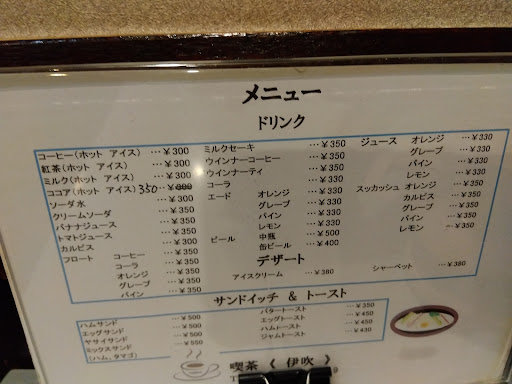 メニュー
ドリンク
コーヒー(ホット アイス) …￥300
紅茶(ホット アイス) …￥300
ミルク(ホット アイス) …￥300
ココア(ホット アイス) 350 …￥300
ソーダ水 …￥300
クリームソーダ …￥350
バナナジュース …￥350
トマトジュース …￥350
カルピス …￥300
フロート コーヒー …￥350
コーラ …￥350
オレンジ …￥350
グレープ …￥350
パイン …￥350
ミルクセーキ …￥350
ウインナーコーヒー …￥350
ウインナーティ …￥350
コーラ …￥350
エード オレンジ …￥330
グレープ …￥330
パイン …￥330
レモン …￥330
ビール 中瓶 …￥500
缶ビール …￥400
ジュース オレンジ …￥330
グレープ …￥330
パイン …￥330
レモン …￥330
スッカッシュ オレンジ …￥350
カルピス …￥350
グレープ …￥350
パイン …￥350
レモン …￥350
デザート
アイスクリーム …￥380
シャーベット …￥380
サンドイッチ ＆ トースト
ハムサンド …￥500
エッグサンド …￥500
ヤサイサンド …￥500
ミックスサンド …￥550
(ハム、タマゴ)
バタートースト …￥350
エッグトースト …￥450
ハムトースト …￥450
ジャムトースト …￥430
喫茶 《 伊吹 》